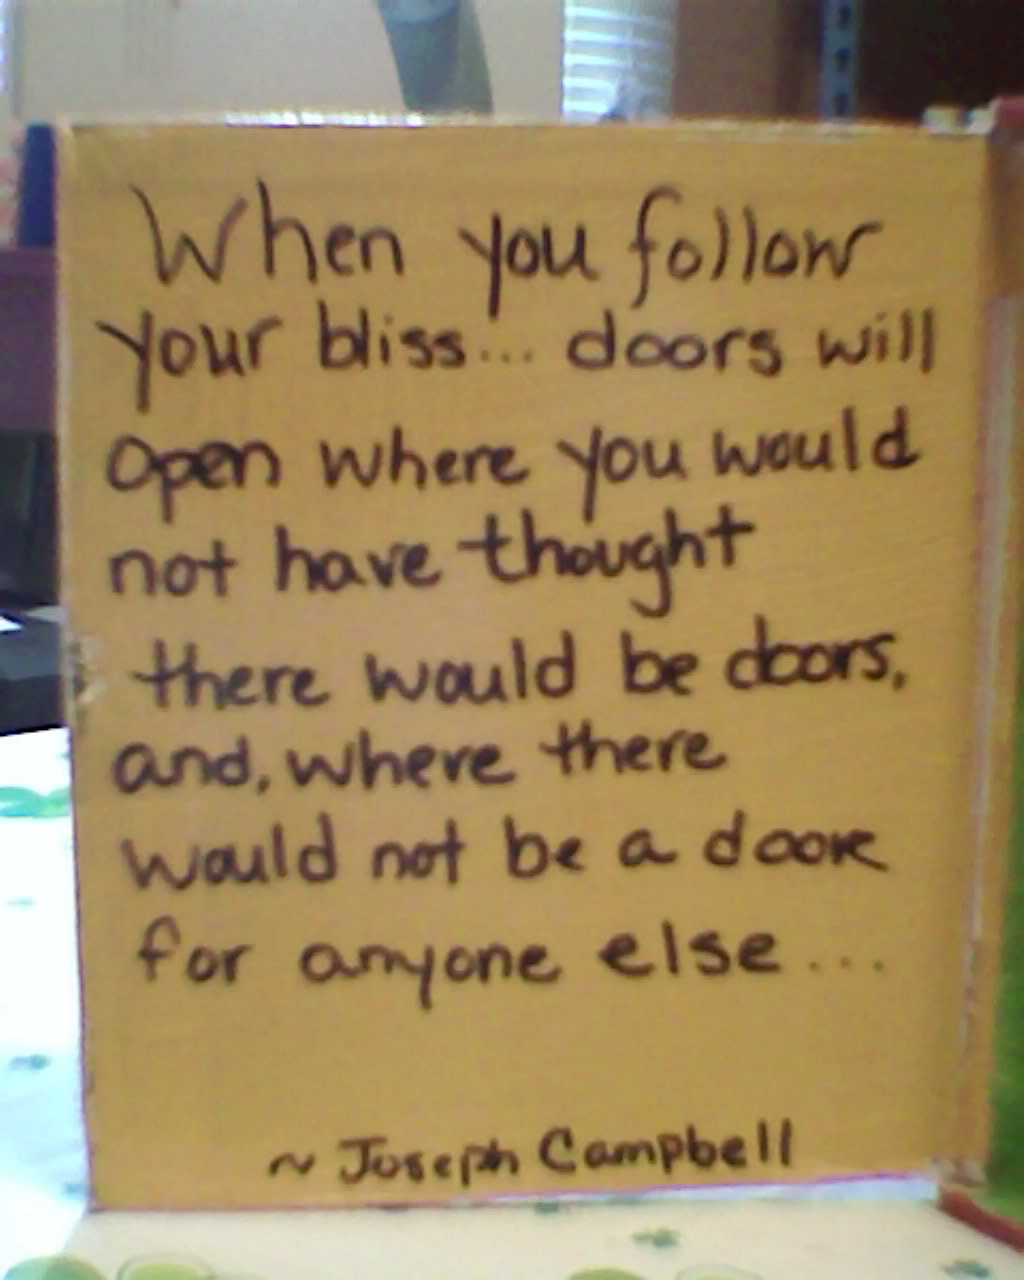 When you follow
your bliss... doors will
open where you would
not have thought
there would be doors,
and, where there
would not be a door
for anyone else...
~ Joseph Campbell